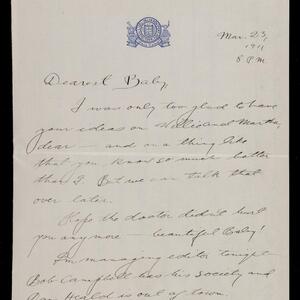 Mar. 23,
1911
8 P.M.
Dearest Baby,
I was only too glad to have
your ideas on Willie and Martha,
dear — and in a thing like
that you know so much better
than I. But we can talk that
over later.
Hope the doctor didn't hurt
you anymore — beautiful Baby!
I'm managing editor tonight.
Bob Campbell has his society and
Dan Heald is out of town.